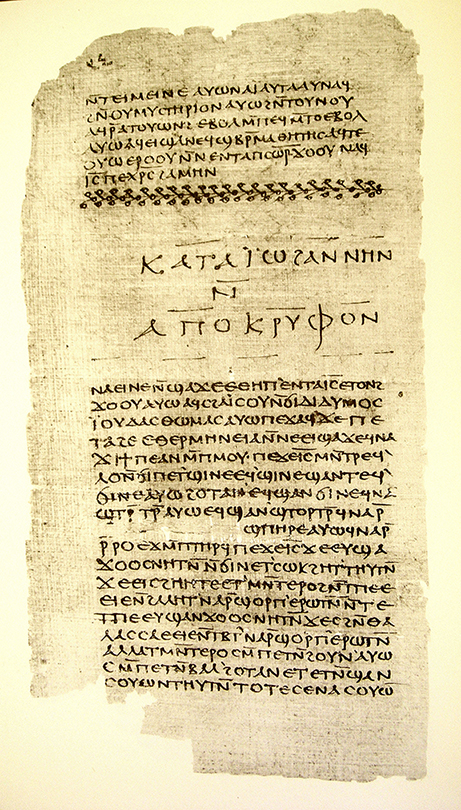 ⲛ̄ⲧⲉⲓⲙⲉⲓⲛⲉ ⲁⲩⲱ ⲛⲁⲓ ⲁⲩⲧⲁⲁⲩ ⲛⲁϥ
ϩⲛ̄ⲟⲩⲙⲩⲥⲧⲏⲣⲓⲟⲛ ⲁⲩⲱ ϩⲛ̄ⲧⲟⲩⲛⲟⲩ
ⲁϥⲣⲁⲧⲟⲩⲱⲛϩ ⲉⲃⲟⲗ ⲙ̄ⲡⲉϥⲙⲧⲟ ⲉⲃⲟⲗ
ⲁⲩⲱ ⲁϥⲉⲓ ϣⲁ ⲛⲉϥϣⲃⲣⲙⲁⲑⲏⲧⲏⲥ ⲁϥⲧⲉ
ⲟⲩⲱ ⲉⲣⲟⲟⲩ ⲛ̄ⲛⲉⲛⲧⲁ ⲡⲥⲱ̅ⲣ̅ ϫⲟⲟⲩ ⲛⲁϥ
ⲓ̅ⲥ̅ ⲡⲉⲭ̅ⲣ̅ⲥ̅ ϩⲁⲙⲏⲛ
ⲕⲁⲧⲁ ⲓ̈ⲱϩⲁⲛⲛⲏⲛ
ⲛ̄
ⲁⲡⲟⲕⲣⲩⲫⲟⲛ
ⲛⲁⲉⲓ ⲛⲉ ⲛ̄ϣⲁϫⲉ ⲉⲑⲏⲡ ⲉⲛⲧⲁ ⲓ̅ⲥ̅ ⲉⲧⲟⲛϩ
ϫⲟⲟⲩ ⲁⲩⲱ ⲁϥⲥϩⲁⲓ̈ⲥⲟⲩ ⲛ̄ϭⲓ ⲇⲓⲇⲩⲙⲟⲥ
ⲓ̈ⲟⲩⲇⲁⲥ ⲑⲱⲙⲁⲥ ⲁⲩⲱ ⲡⲉϫⲁϥ ϫⲉ ⲡⲉ
ⲧⲁϩⲉ ⲉⲑⲉⲣⲙⲏⲛⲉⲓⲁ ⲛ̄ⲛⲉⲉⲓϣⲁϫⲉ ϥⲛⲁ
ϫⲓ ϯⲡⲉ ⲁⲛ ⲙ̄ⲡⲙⲟⲩ ⲡⲉϫⲉ ⲓ̅ⲥ̅ ⲙⲛ̄ⲧⲣⲉϥ
ⲗⲟ ⲛ̄ϭⲓ ⲡⲉⲧϣⲓⲛⲉ ⲉϥϣⲓⲛⲉ ϣⲁⲛⲧⲉϥ
ϭⲓⲛⲉ ⲁⲩⲱ ϩⲟⲧⲁⲛ ⲉϥϣⲁⲛϭⲓⲛⲉ ϥⲛⲁ
ϣⲧⲣ̄ⲧⲣ̄ ⲁⲩⲱ ⲉϥϣⲁⲛϣⲧⲟⲣⲧⲣ̄ ϥⲛⲁⲣ̄
ϣⲡⲏⲣⲉ ⲁⲩⲱ ϥⲛⲁⲣ̄
ⲣ̄ⲣⲟ ⲉϫⲙ̄ ⲡⲧⲏⲣϥ ⲡⲉϫⲉ ⲓ̅ⲥ̅ ϫⲉ ⲉⲩϣⲁ
ϫⲟⲟⲥ ⲛⲏⲧⲛ̄ ⲛ̄ϭⲓ ⲛⲉⲧⲥⲱⲕ ϩⲏⲧ ⲧⲏⲩⲧⲛ̄
ϫⲉ ⲉⲓⲥϩⲏⲏⲧⲉ ⲉⲧⲙⲛ̄ⲧⲉⲣⲟ ϩⲛ̄ ⲧⲡⲉ ⲉ
ⲉⲓⲉ ⲛ̄ϩⲁⲗⲏⲧ ⲛⲁⲣ̄ϣⲟⲣⲡ ⲉⲣⲱⲧⲛ̄ ⲛ̄ⲧⲉ
ⲧⲡⲉ ⲉⲩϣⲁⲛϫⲟⲟⲥ ⲛⲏⲧⲛ̄ ϫⲉ ⲥϩⲛ̄ ⲑⲁ
ⲗⲁⲥⲥⲁ ⲉⲉⲓⲉ ⲛ̄ⲧⲃⲧ ⲛⲁⲣ̄ϣⲟⲣⲡ ⲉⲣⲱⲧⲛ̄
ⲁⲗⲗⲁ ⲧⲙⲛ̄ⲧⲉⲣⲟ ⲥⲙ̄ⲡⲉⲧⲛ̄ϩⲟⲩⲛ ⲁⲩⲱ
ⲥⲙ̄ⲡⲉⲧⲛ̄ⲃⲁⲗ ϩⲟⲧⲁⲛ ⲉⲧⲉⲧⲛ̄ϣⲁⲛ
ⲥⲟⲩⲱⲛ ⲧⲏⲩⲧⲛ̄ ⲧⲟⲧⲉ ⲥⲉⲛⲁⲥⲟⲩⲱ